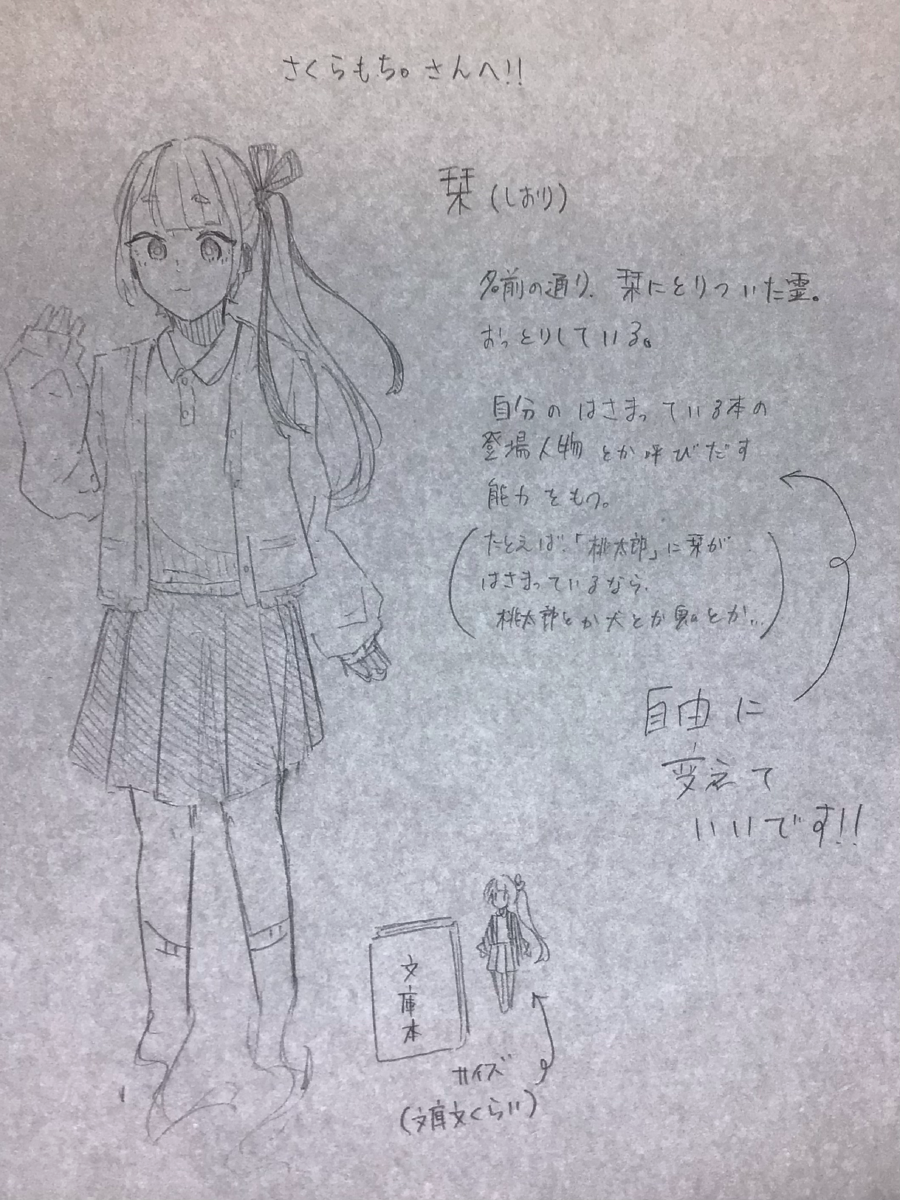 さくらもち。さんへ!!
栞(しおり)
名前の通り、栞にとりついた霊。
おっとりしている。
自分のはさまっている本の
登場人物とか呼びだす
能力をもつ。
(たとえば、「桃太郎」に栞が
はさまっているなら、
桃太郎とか犬とか鬼とか…)
自由に
変えて
いいです!!
文庫本
サイズ
(文庫文くらい)